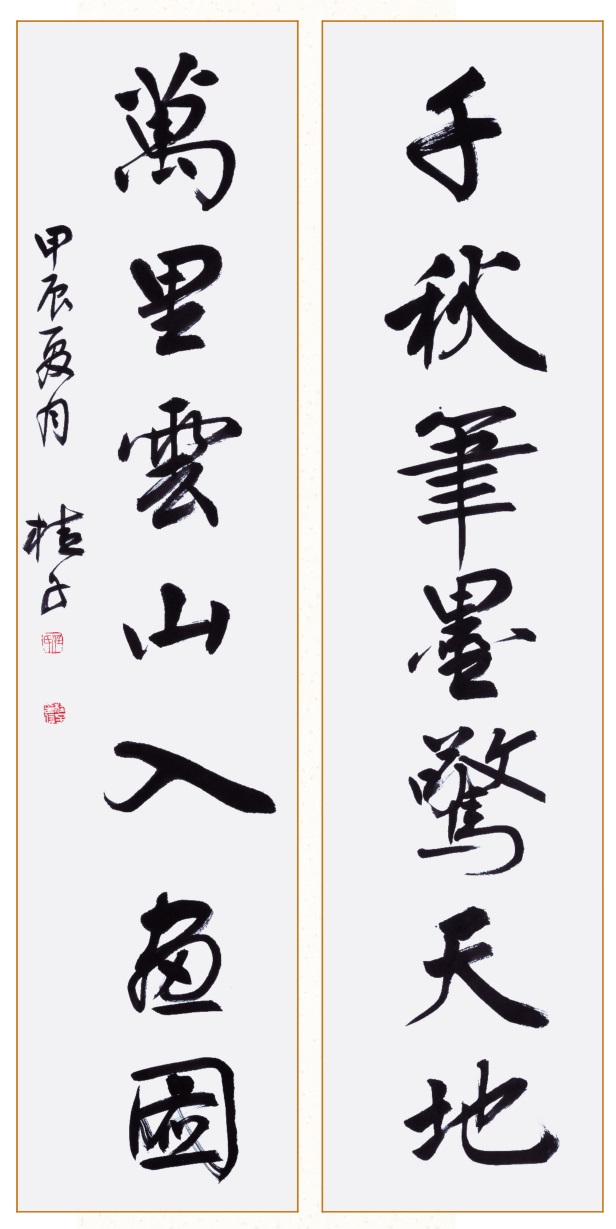 千秋筆墨驚天地
萬里雲山入畫圖
甲辰夏月